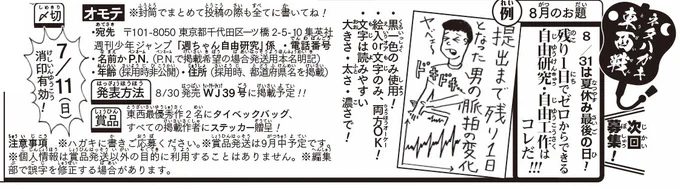 ネタハガキ
東西戦
次回募集！
8月のお題
8/31は夏休み最後の日！
残り1日でゼロからできる
自由研究・自由工作は
コレだ!!!
例
提出まで残り1日
となった男の脈拍の変化
ヤベ〜!
・黒ペンのみ使用！
・絵入りor文字のみ、両方OK！
・文字は読みやすい
大きさ・太さ・濃さで！
〆切
7/11(日)
消印有効！
オモテ
※封筒でまとめて投稿の際も全てに書いてね！
・宛先 〒101-8050 東京都千代田区一ツ橋 2-5-10 集英社
週刊少年ジャンプ「週ちゃん自由研究」係 ・電話番号
・名前かP.N.(P.N.で掲載希望の場合発送用本名明記)
・年齢(採用時非公開)・住所(採用時、都道府県名を掲載)
発表方法
8/30発売WJ39号に掲載予定!!
賞品
東西最優秀作2名にタイベックバッグ、
すべての掲載作者にステッカー贈呈！
注意事項 ※ハガキに書きご応募ください。※賞品発送は9月中予定です。
※個人情報は賞品発送以外の目的に利用することはありません。※編集
部で誤字を修正する場合があります。